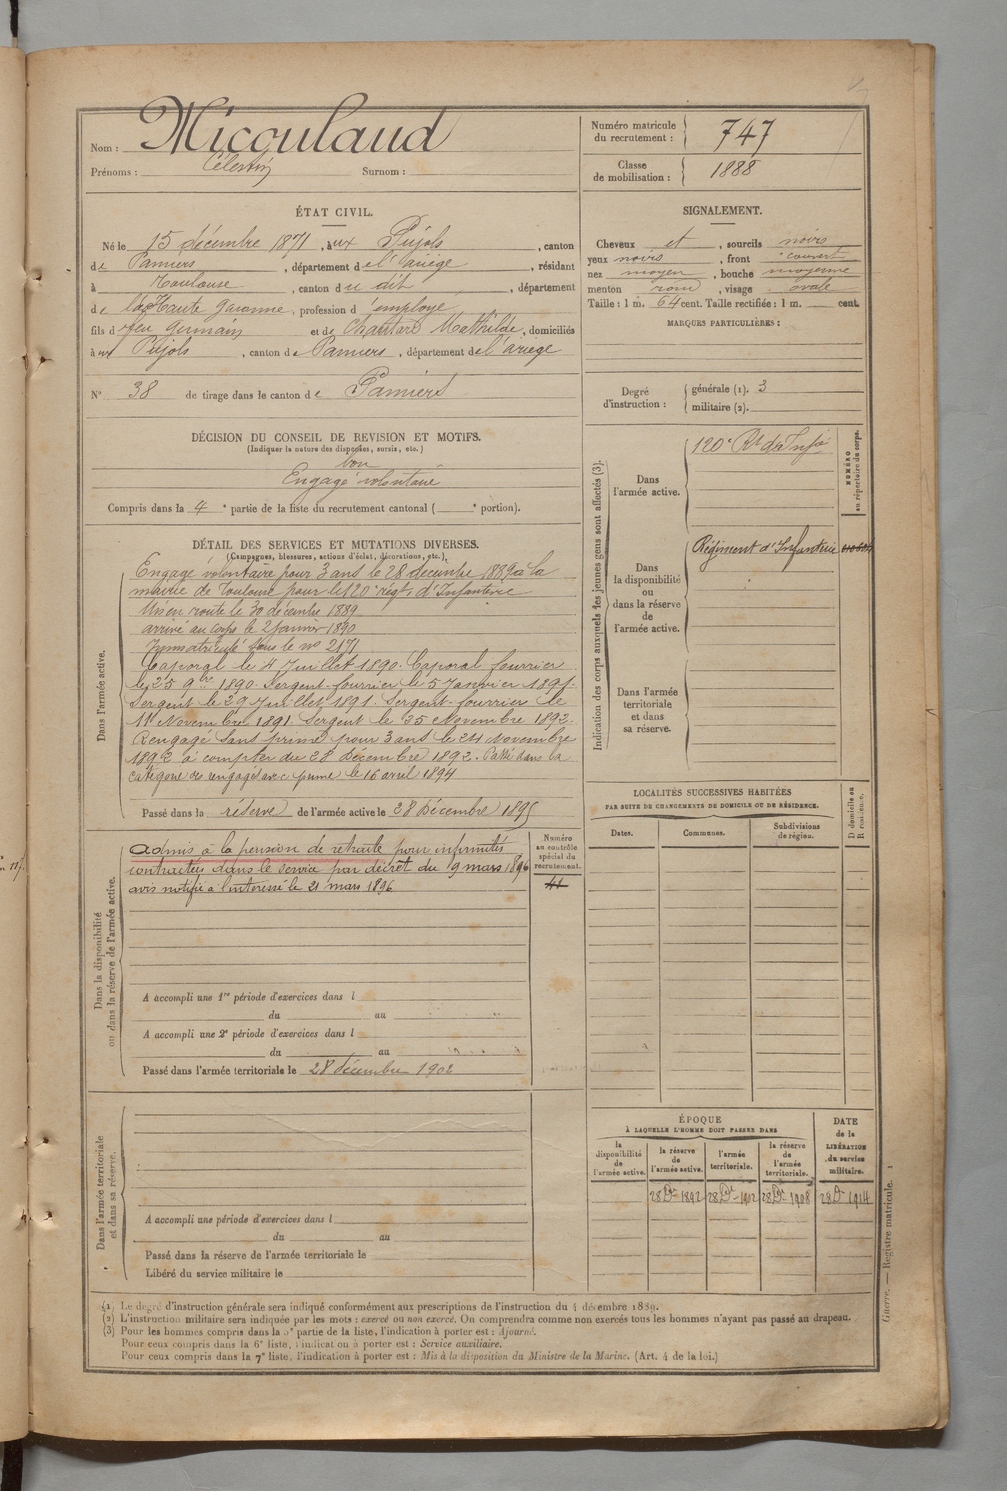 Nom : Micoulaud
Prénoms : Célestin Surnom :
Numéro matricule du recrutement : 747
Classe de mobilisation : 1888
ÉTAT CIVIL.
Né le 15 décembre 1871, à ux Pujols, canton
de Pamiers, département de l'ariège, résidant
à Toulouse, canton du dit, département
de la Haute Garonne, profession d'employé
fils de feu Germain et de Mathilde, domiciliés
à ux Pujols, canton de Pamiers, département de l'ariège
N° 38 de tirage dans le canton de Pamiers
SIGNALEMENT.
Cheveux et, sourcils noirs
yeux noirs, front couvert
nez moyen, bouche moyenne
menton rond, visage ovale
Taille : 1 m. 64 cent. Taille rectifiée : 1 m. cent.
MARQUES PARTICULIÈRES :
Degré d'instruction : générale (1). 3
militaire (2).
DÉCISION DU CONSEIL DE REVISION ET MOTIFS.
(Indiquer la nature des dispenses, sursis, etc.)
bon
Engagé volontaire
Compris dans la 4e partie de la liste du recrutement cantonal ( e portion).
DÉTAIL DES SERVICES ET MUTATIONS DIVERSES.
(Campagnes, blessures, actions d'éclat, décorations, etc.)
Dans l'armée active.
Engagé volontaire pour 3 ans le 28 décembre 1889 à la
mairie de Toulouse pour le 120e régt d'Infanterie
Mis en route le 30 décembre 1889
arrivé au corps le 2 janvier 1890
Immatriculé sous le no 2171
Caporal le 4 Juillet 1890. Caporal fourrier
le 25 9bre 1890. Sergent-fourrier le 5 Janvier 1891.
Sergent le 29 Juillet 1891. Sergent-fourrier le
11 Novembre 1891. Sergent le 25 Novembre 1892.
Rengagé sans prime pour 3 ans le 24 Novembre
1892 à compter du 28 Décembre 1892. Passé dans la
catégorie des rengagés avec prime le 16 avril 1894
Passé dans la réserve de l'armée active le 28 Décembre 1895
Dans la disponibilité ou dans la réserve de l'armée active.
Admis à la pension de retraite pour infirmités
contractées dans le service par décret du 9 mars 1896
avis notifié à l'intéressé le 21 mars 1896
Numéro au contrôle spécial du recrutement.
A accompli une 1re période d'exercices dans l
du au
A accompli une 2e période d'exercices dans l
du au
Passé dans l'armée territoriale le 28 décembre 1902
Dans l'armée territoriale et dans sa réserve.
A accompli une période d'exercices dans l
du au
Passé dans la réserve de l'armée territoriale le
Libéré du service militaire le
Indication des corps auxquels les jeunes gens sont affectés (3).
Dans l'armée active.
120e Rt d'Infie
NUMÉRO au répertoire du corps.
Dans la disponibilité ou dans la réserve de l'armée active.
Régiment d'Infanterie
Dans l'armée territoriale et dans sa réserve.
LOCALITÉS SUCCESSIVES HABITÉES
PAR SUITE DE CHANGEMENTS DE DOMICILE OU DE RÉSIDENCE.
Dates. Communes. Subdivisions de région. D domicile ou R résidence.
ÉPOQUE
À LAQUELLE L'HOMME DOIT PASSER DANS
la disponibilité de l'armée active. la réserve de l'armée active. l'armée territoriale. la réserve de l'armée territoriale. DATE de la LIBÉRATION du service militaire.
28 Dre 1892 28 Dre 1902 28 Dre 1908 28 D 1914
Guerre. — Registre matricule. 1
(1) Le degré d'instruction générale sera indiqué conformément aux prescriptions de l'instruction du 4 décembre 1889.
(2) L'instruction militaire sera indiquée par les mots : exercé ou non exercé. On comprendra comme non exercés tous les hommes n'ayant pas passé au drapeau.
(3) Pour les hommes compris dans la 5e partie de la liste, l'indication à porter est : Ajourné.
Pour ceux compris dans la 6e liste, l'indication à porter est : Service auxiliaire.
Pour ceux compris dans la 7e liste, l'indication à porter est : Mis à la disposition du Ministre de la Marine. (Art. 4 de la loi.)